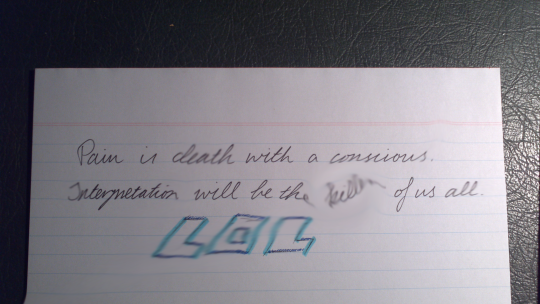 Pain is death with a conscious.
Interpretation will be the killer of us all.
LOL